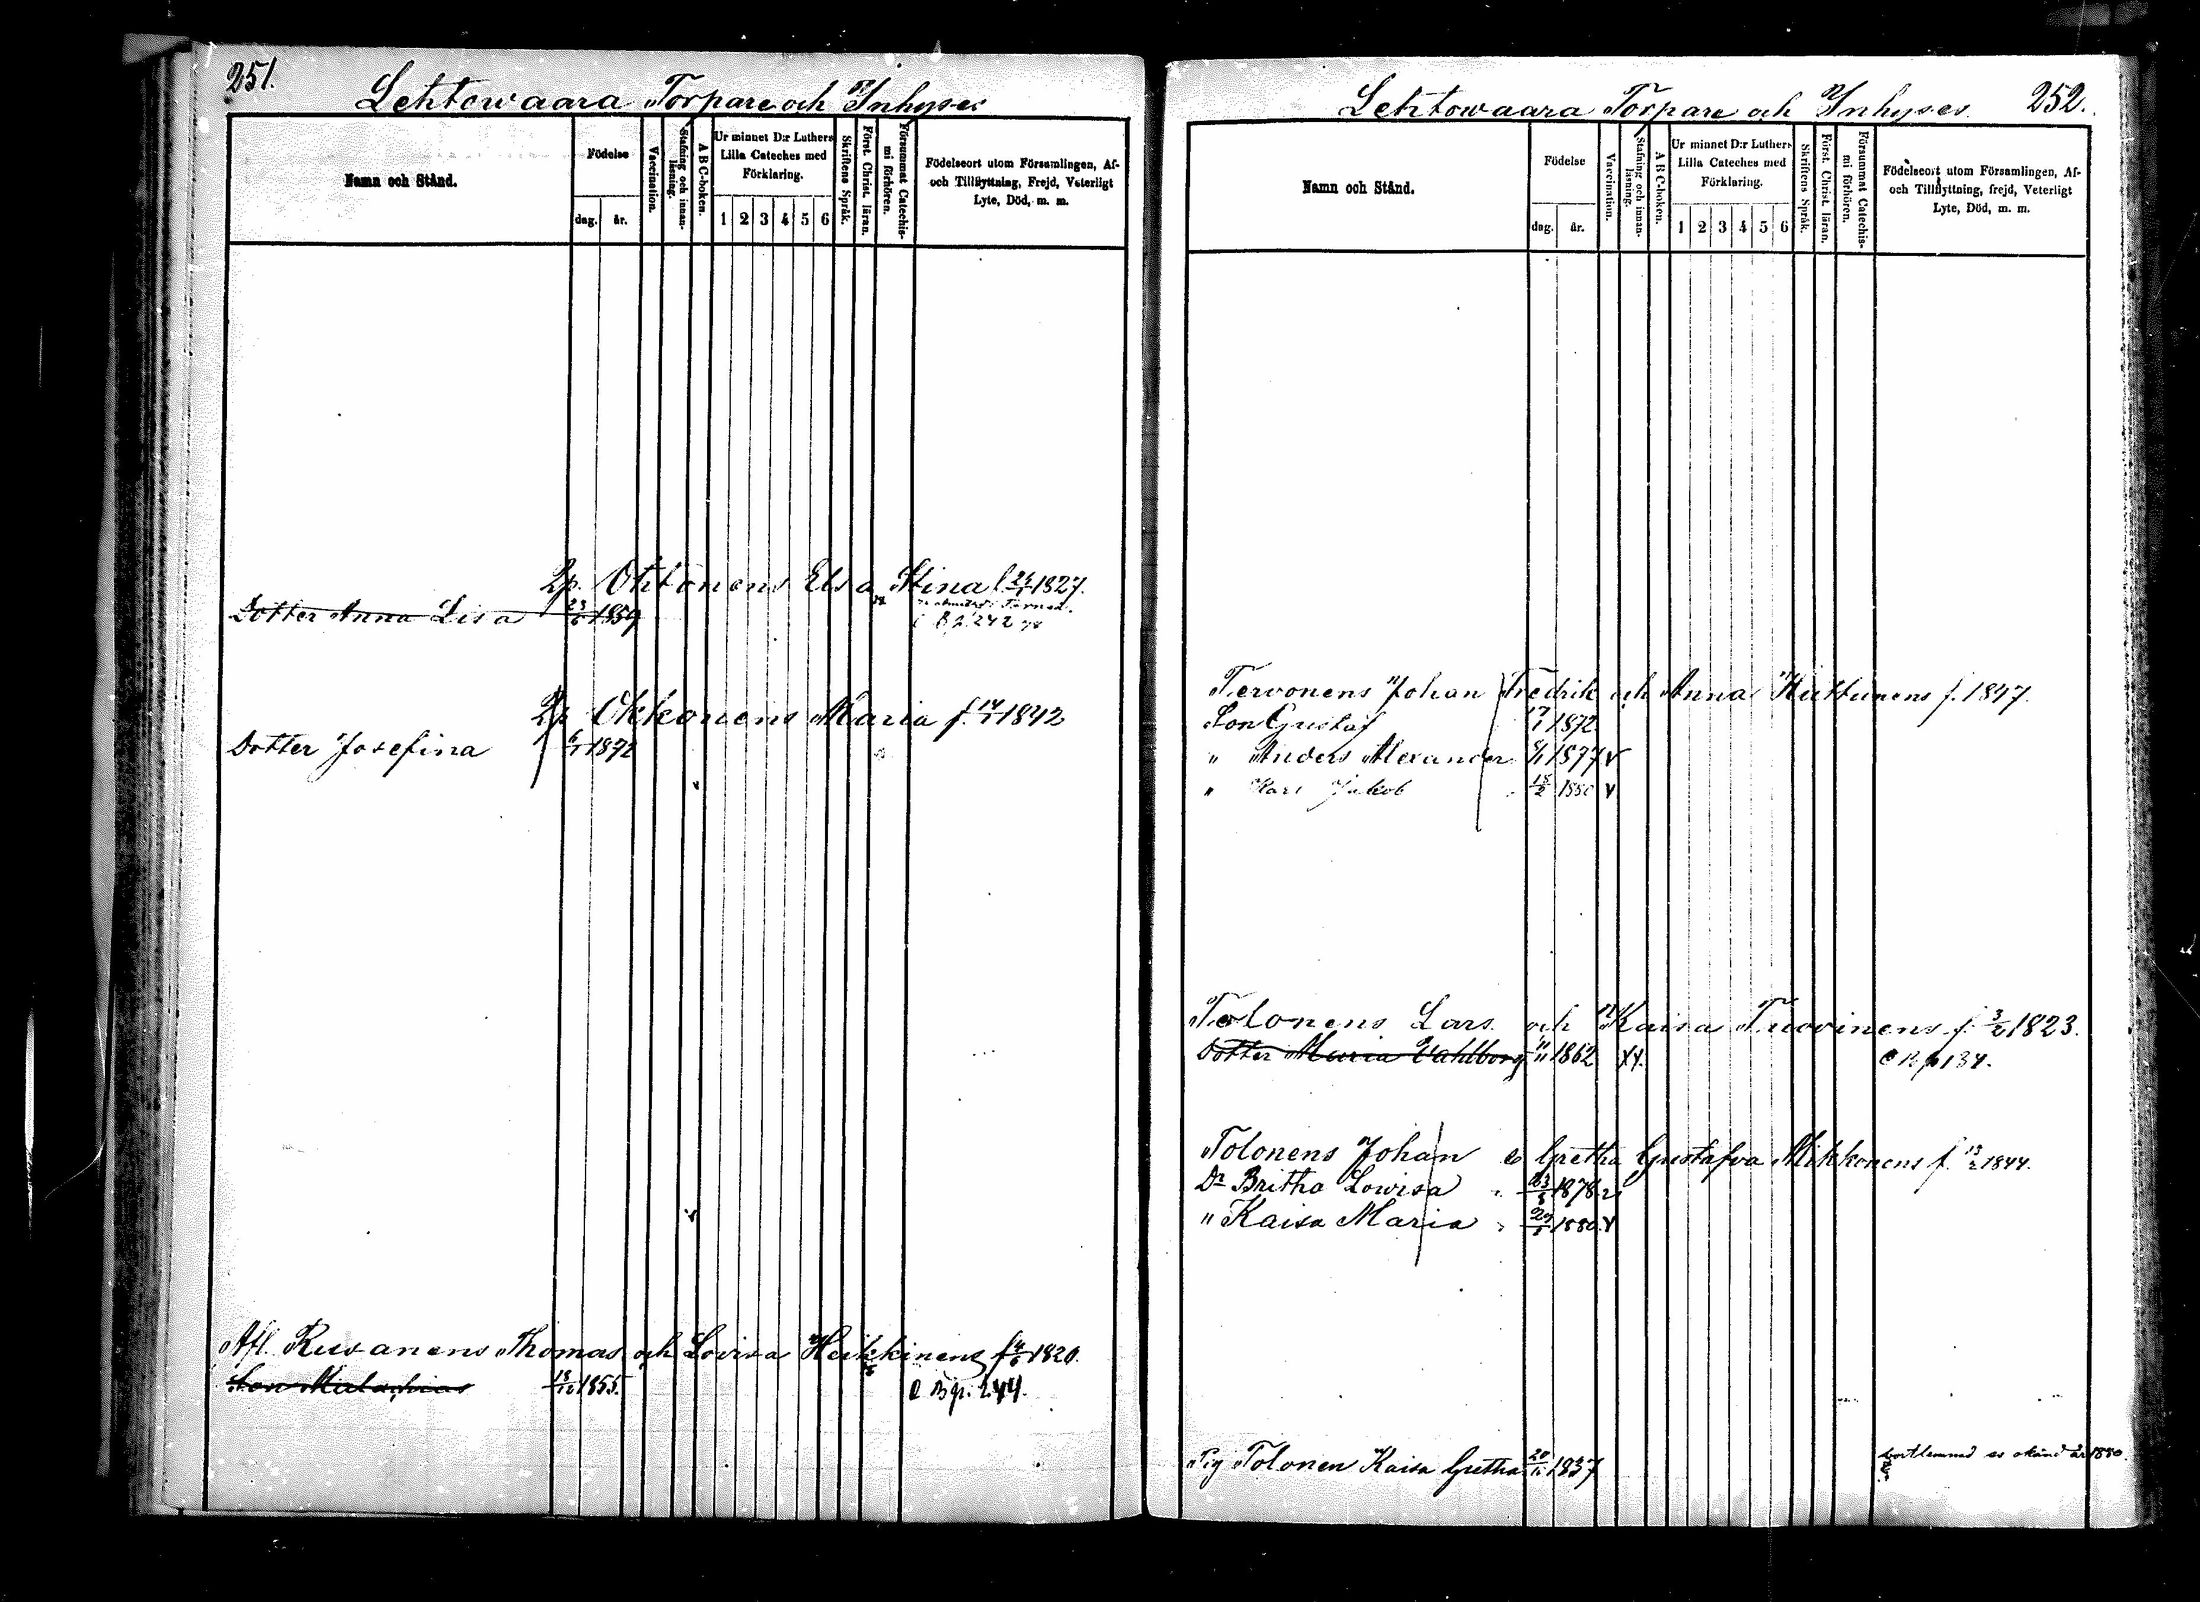 251.
Lehtowaara Torpare och Inhyses
Namn och Stånd.
Födelse
dag.
år.
Vaccination.
Stafning och innan-
läsning.
A B C-boken.
Ur minnet D:r Luthers
Lilla Cateches med
Förklaring.
1 2 3 4 5 6
Skriftens Språk.
Först. Christ. läran.
Försummat Catechis-
mi förhören.
Födelseort utom Församlingen, Af-
och Tillflyttning, Frejd, Veterligt
Lyte, Död, m. m.
Ohtonens Elsa Stina f 24/1 1827.
Dotter Anna Lisa 23/6 1859
242
Okkonens Maria f. 14/1 1842
Dotter Josefina 6/1 1872
Afl. Rusanens Thomas och Lovisa Heikkinens f 4/6 1820.
Son Malachias 18/12 1855.
B p. 244.
Lehtowaara Torpare och Inhyses
252.
Namn och Stånd.
Födelse
dag.
år.
Vaccination.
Stafning och innan-
läsning.
A B C-boken.
Ur minnet D:r Luthers
Lilla Cateches med
Förklaring.
1 2 3 4 5 6
Skriftens Språk.
Först. Christ. läran.
Försummat Catechis-
mi förhören.
Födelseort utom Församlingen, Af-
och Tillflyttning, frejd, Veterligt
Lyte, Död, m. m.
Tervonens Johan Fredrik och Anna Huttunens f. 1847.
Son Gustaf 17/1 1872
" Anders Alexander 8/11 1877 v
" Karl Jakob 15/2 1880 v
Tolonens Lars och Kaisa Tuovinens f. 3/2 1823.
Dotter Maria Wahlborg 11/11 1862 XX. B p 134.
Tolonens Johan o Gretha Gustafva Mikkonens f. 13/2 1844.
Dr Britha Lowisa 23/8 1878 v
" Kaisa Maria 29/8 1880 v
Pig Tolonen Kaisa Gretha 20/11 1837
bortlemnad ss okänd år 1880.